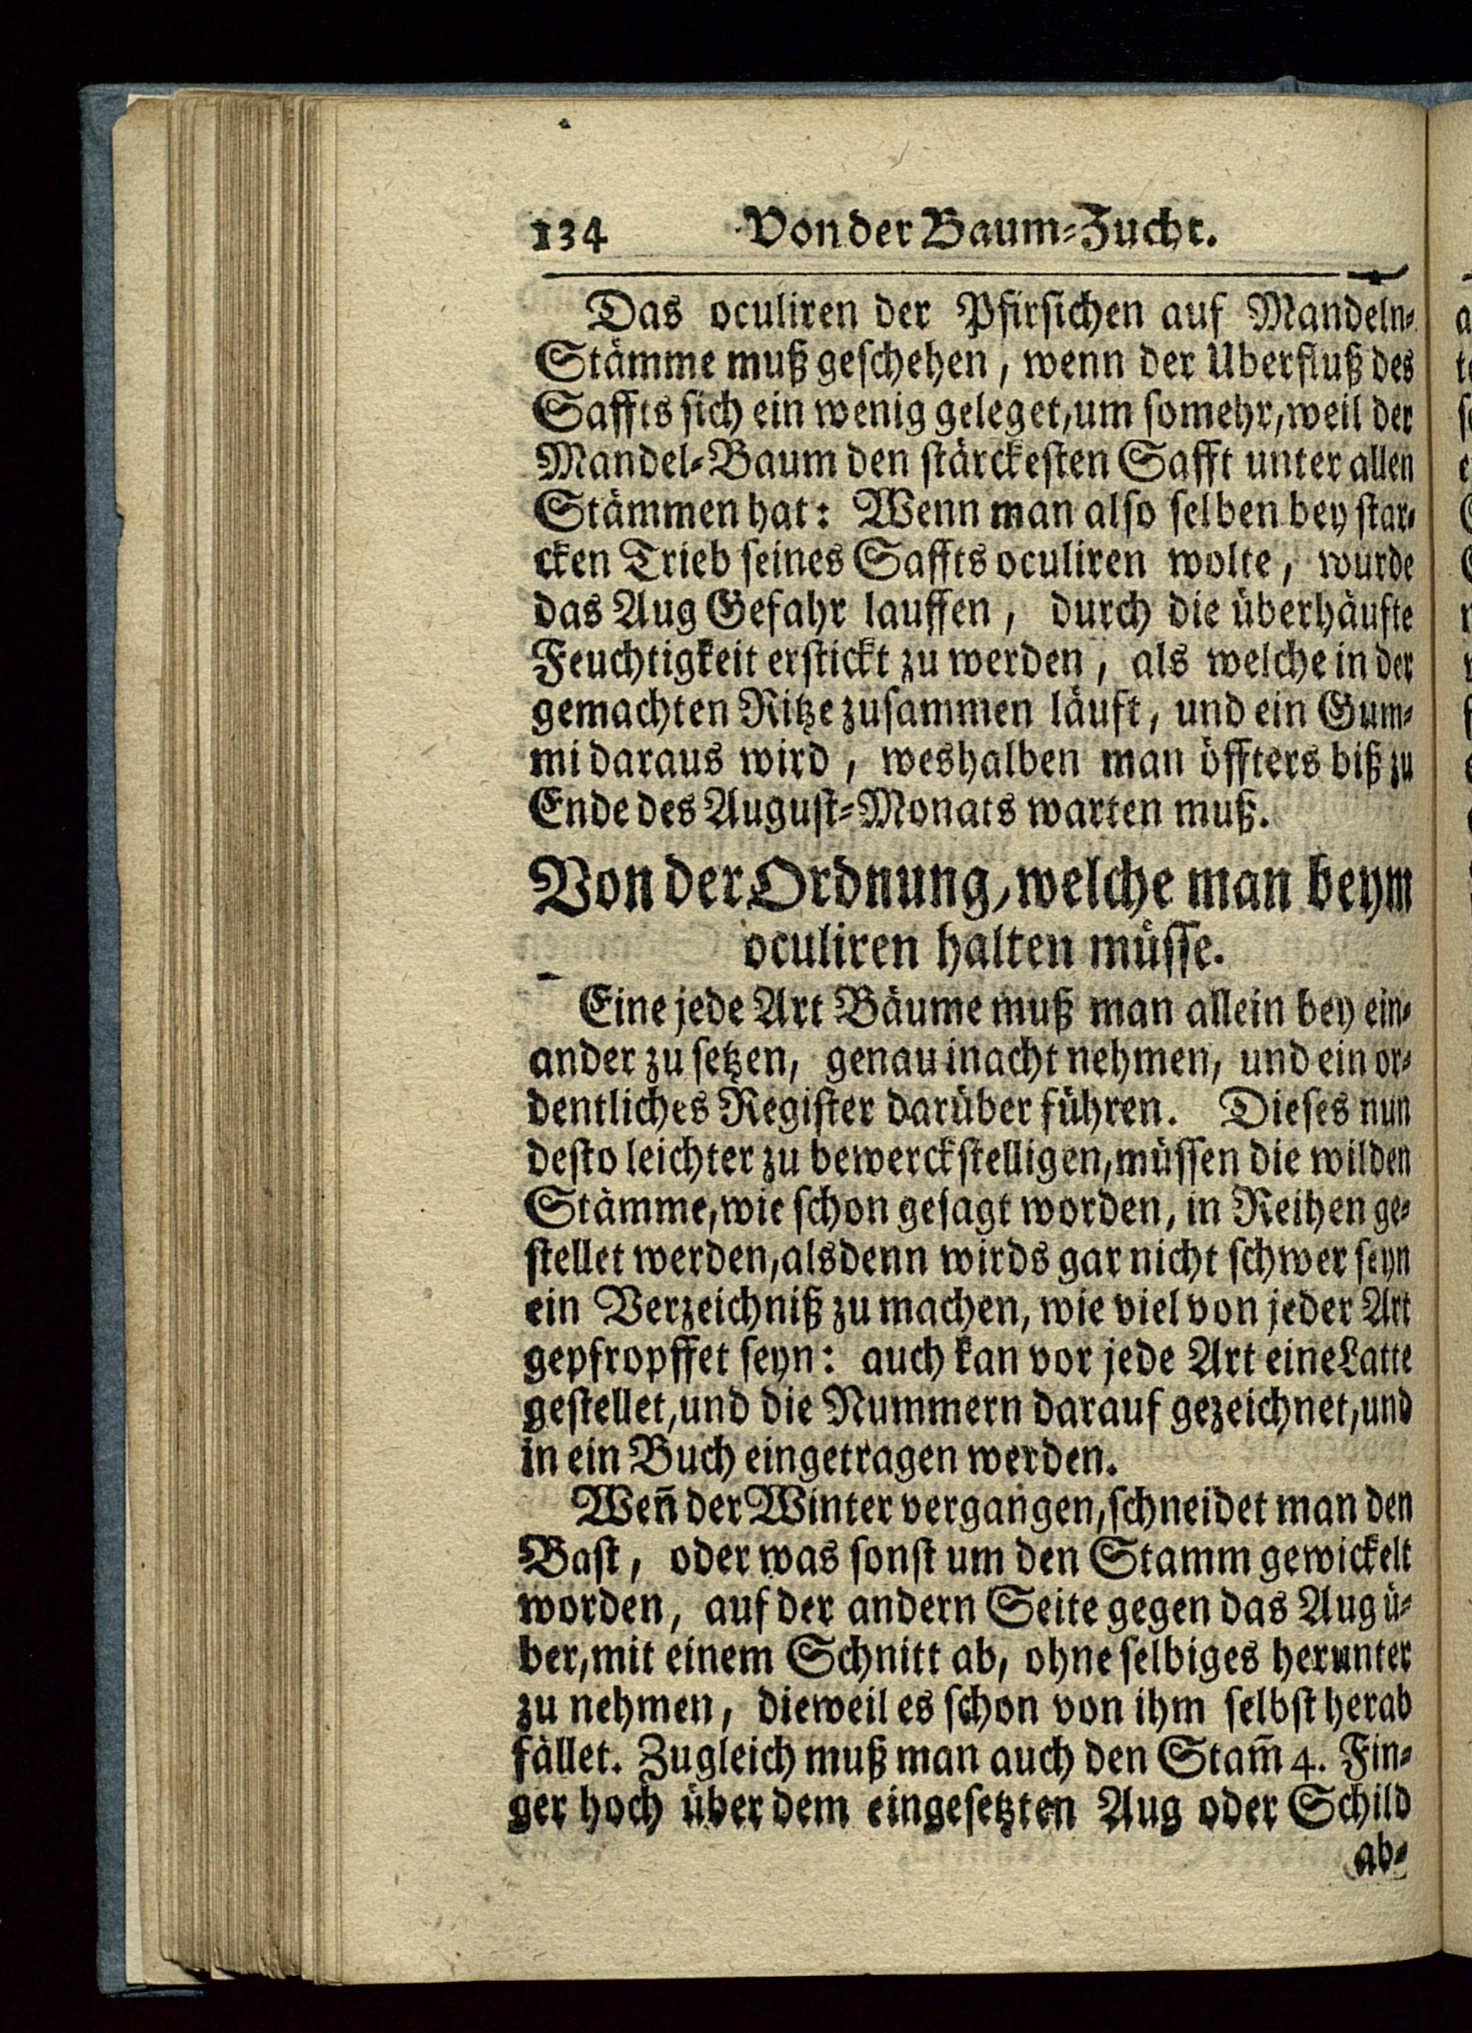 134 Von der Baum-Zucht.
Das oculiren der Pfirsichen auf Mandeln-
Stämme muß geschehen, wenn der Uberfluß des
Saffts sich ein wenig geleget, um somehr, weil der
Mandel-Baum den stärckesten Safft unter allen
Stämmen hat: Wenn man also selben bey star-
cken Trieb seines Saffts oculiren wolte, wurde
das Aug Gefahr lauffen, durch die überhäufte
Feuchtigkeit erstickt zu werden, als welche in der
gemachten Ritze zusammen läuft, und ein Gum-
mi daraus wird, weshalben man öffters biß zu
Ende des August-Monats warten muß.
Von der Ordnung, welche man beym
oculiren halten müsse.
Eine jede Art Bäume muß man allein bey ein-
ander zu setzen, genau inacht nehmen, und ein or-
dentliches Register darüber führen. Dieses nun
desto leichter zu bewerckstelligen, müssen die wilden
Stämme, wie schon gesagt worden, in Reihen ge-
stellet werden, alsdenn wirds gar nicht schwer seyn
ein Verzeichniß zu machen, wie viel von jeder Art
gepfropffet seyn: auch kan vor jede Art eine Latte
gestellet, und die Nummern darauf gezeichnet, und
in ein Buch eingetragen werden.
Weñ der Winter vergangen, schneidet man den
Bast, oder was sonst um den Stamm gewickelt
worden, auf der andern Seite gegen das Aug ü-
ber, mit einem Schnitt ab, ohne selbiges herunter
zu nehmen, dieweil es schon von ihm selbst herab
fället. Zugleich muß man auch den Stam̃ 4. Fin-
ger hoch über dem eingesetzten Aug oder Schild
ab-